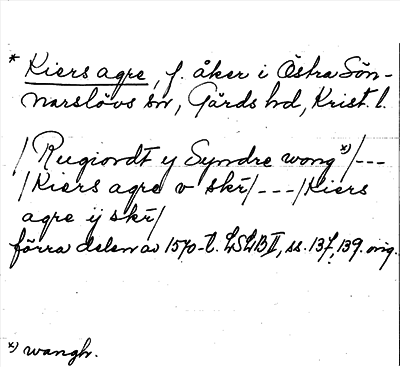 * Kiers agre, f. åker i Östra Sön-
narslövs sn, Gärds hd, Krist. l.
/Rugiordt y Syndre wong *)/---
/Kiers agre v skr̄/---/Kiers
agre ij skr̄/
förra delen av 1570-t. LSLB II, ss. 137, 139. orig.
*) wangh.